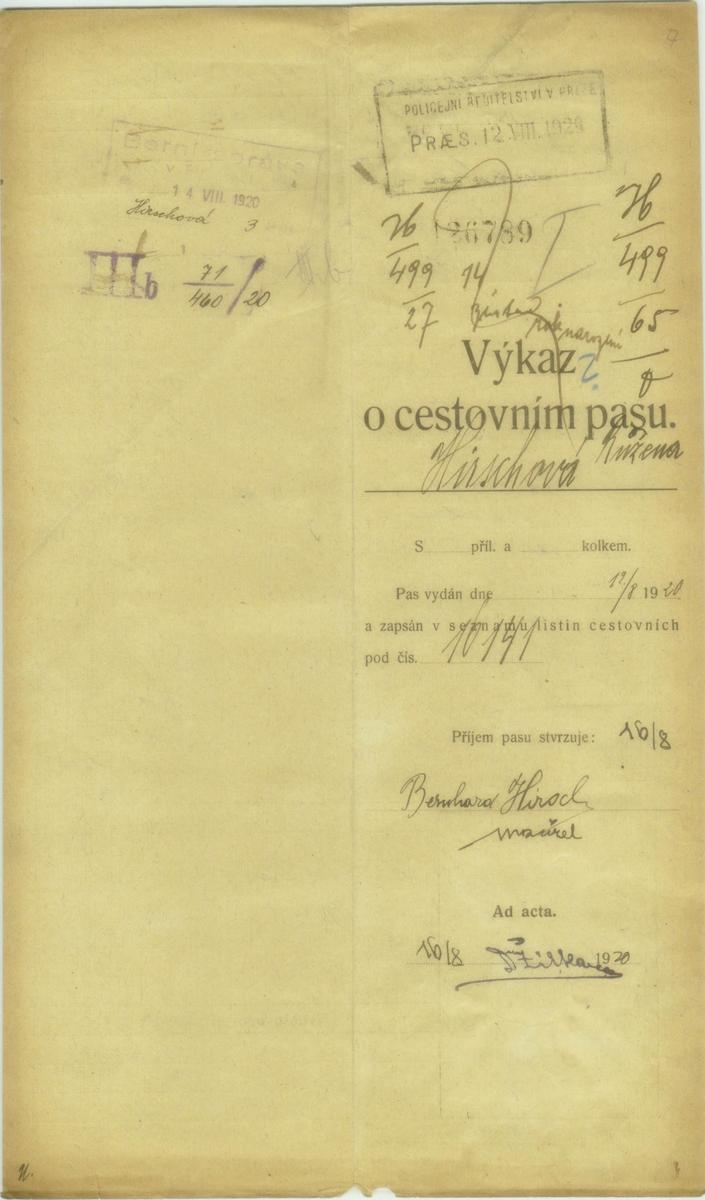 14 VIII. 1920
Hirschová 3
IIIb 71/460/20
POLICEJNÍ ŘEDITELSTVÍ V PRAZE
PRÆS. 12 VIII. 1920
126789
H 499 27
14
H 499 65 8
rok narození
Výkaz
o cestovním pasu.
Hirschová Růžena
S příl. a kolkem.
Pas vydán dne 12/8 1920
a zapsán v seznamu listin cestovních
pod čís. 10141
Příjem pasu stvrzuje: 16/8
Bernhard Hirsch
manžel
Ad acta.
16/8 1920